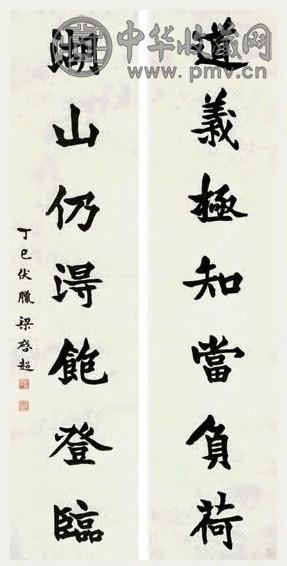 中华收藏网
www.pmv.cn
道義極知當負荷
湖山仍得飽登臨
丁巳伏臘梁啓超